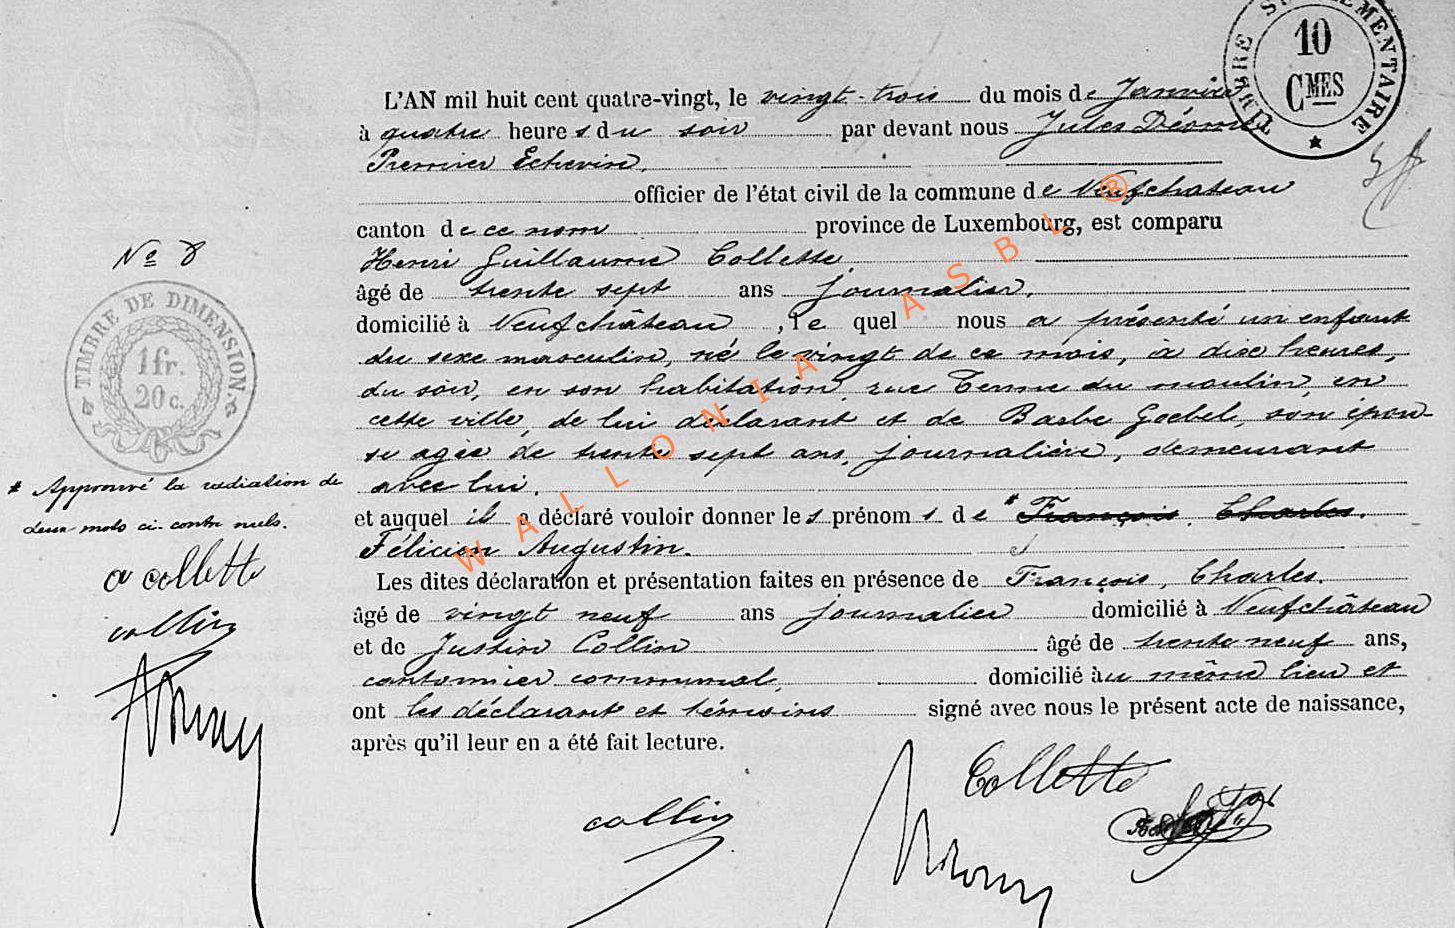 TIMBRE SUPPLEMENTAIRE
10
CMES
L'AN mil huit cent quatre-vingt, le vingt-trois du mois de Janvier
à quatre heures du soir par devant nous Jules
Premier Echevin,
officier de l'état civil de la commune de Neufchateau
canton de ce nom province de Luxembourg, est comparu
Henri Guillaume Collette,
âgé de trente sept ans journalier,
domicilié à Neufchâteau, le quel nous a présenté un enfant
du sexe masculin, né le vingt de ce mois, à dix heures,
du soir, en son habitation, rue Terme du moulin, en
cette ville, de lui déclarant et de Barbe Goebel, son épou-
se agée de trente sept ans, journalière, demeurant
avec lui.
et auquel il a déclaré vouloir donner les prénoms de * François, Charles.
Félicien Augustin.
Les dites déclaration et présentation faites en présence de François, Charles.
âgé de vingt neuf ans journalier domicilié à Neufchâteau
et de Justin Collin âgé de trente neuf ans,
cantonnier communal, domicilié au même lieu et
ont les déclarant et témoins signé avec nous le présent acte de naissance,
après qu'il leur en a été fait lecture.
No 8
TIMBRE DE DIMENSION
1 fr.
20 c.
* Approuvé la radiation de
deux mots ci-contre nuls.
collette
collin
Collette
collin
WALLONIA ASBL ®